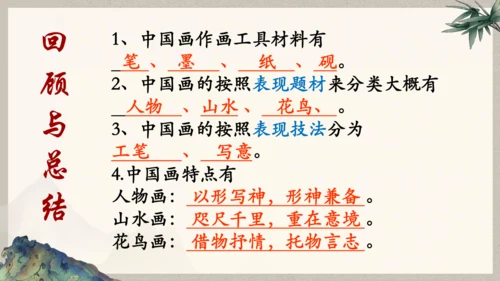 回顾与总结
1、中国画作画工具材料有
笔、墨、纸、砚。
2、中国画的按照表现题材来分类大概有
人物、山水、花鸟、。
3、中国画的按照表现技法分为
工笔、写意。
4.中国画特点有
人物画：以形写神，形神兼备。
山水画：咫尺千里，重在意境。
花鸟画：借物抒情，托物言志。